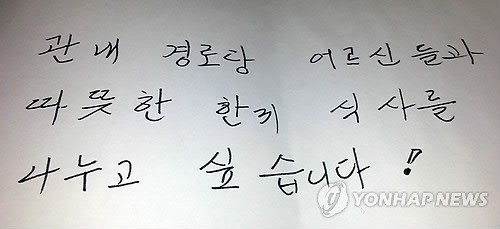 관내 경로당 어르신들과
따뜻한 한끼 식사를
나누고 싶습니다!
YONHAPNEWS